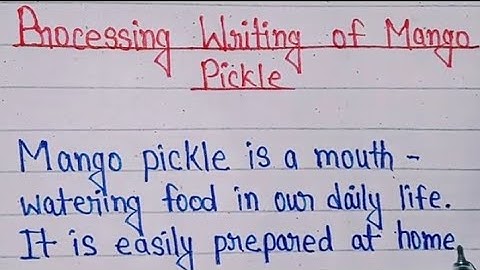 Processing Writing of Mango
Pickle
Mango pickle is a mouth -
watering food in our daily life.
It is easily prepared at home